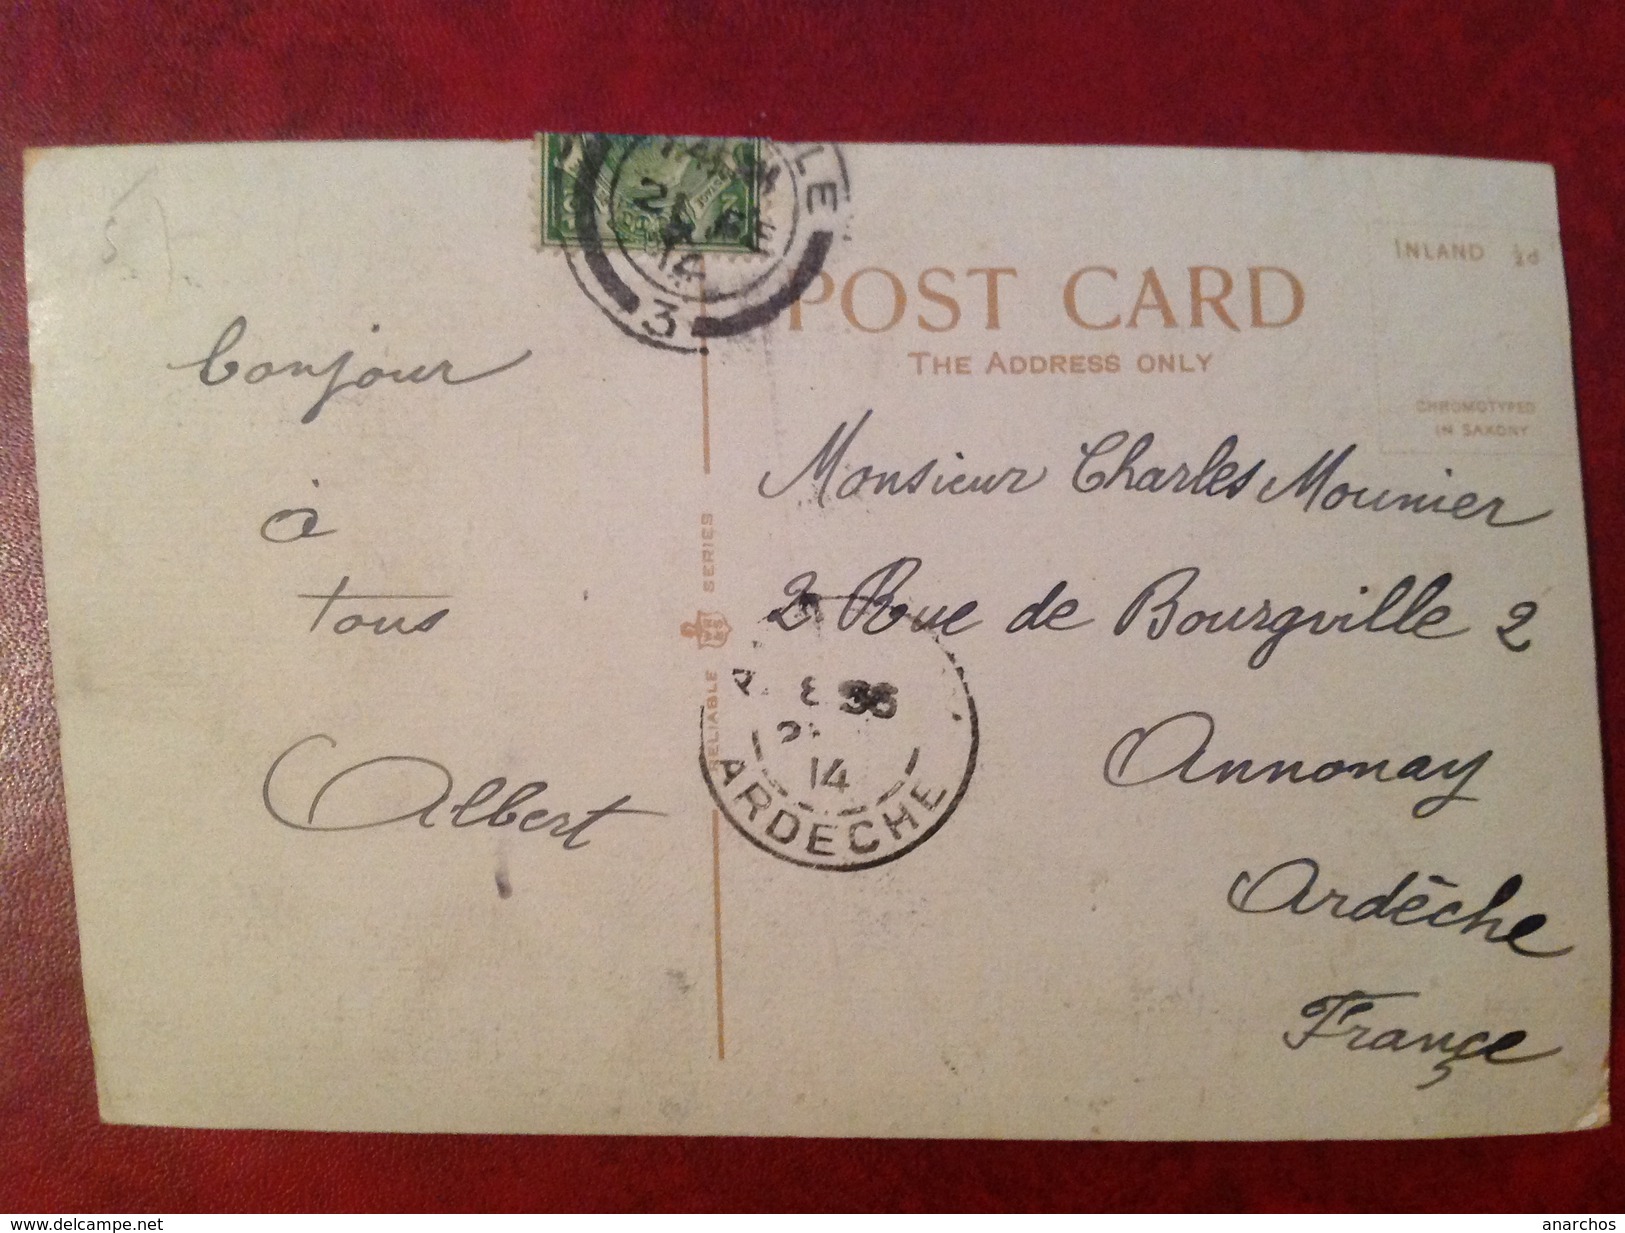 LE
14
3
POST CARD
THE ADDRESS ONLY
INLAND ½d
CHROMOTYPED
IN SAXONY
bonjour
à
tous
Albert
RELIABLE
SERIES
Monsieur Charles Mounier
2 Rue de Bourgville 2
Annonay
Ardèche
Françe
8 35
14
ARDECHE
www.delcampe.net
anarchos